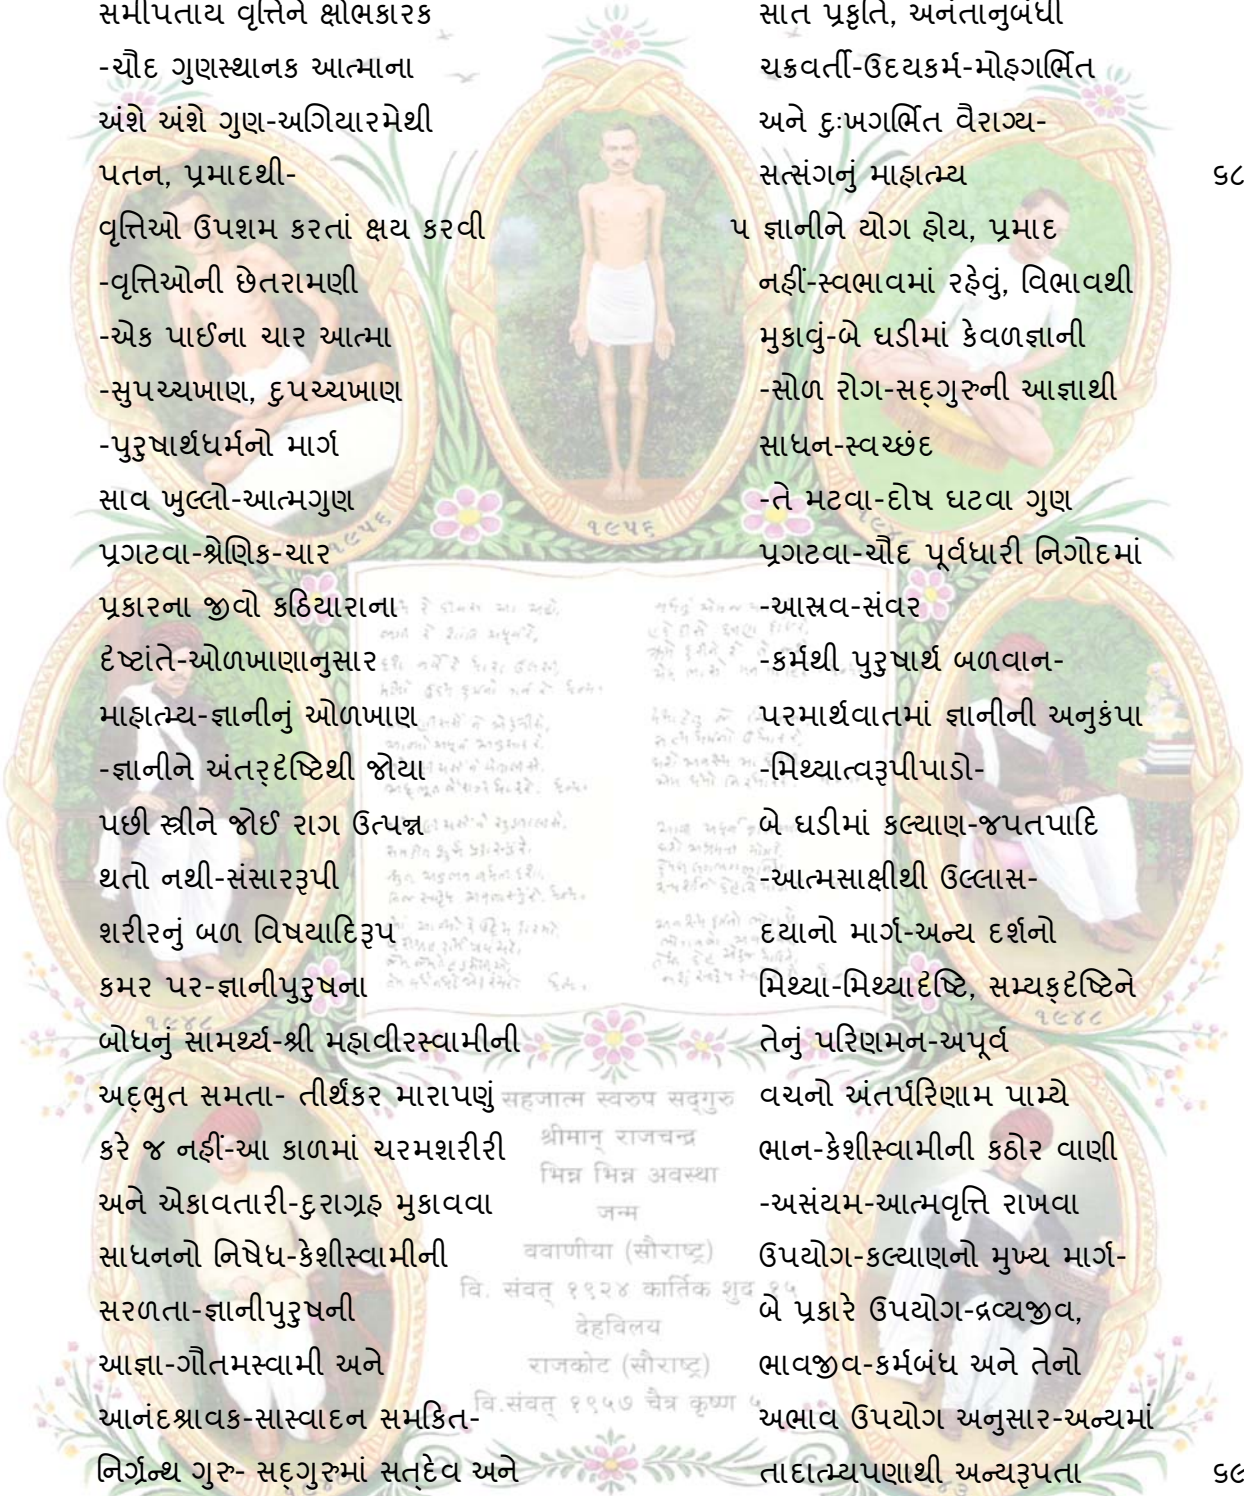 સમીપતાય વૃત્તિને ક્ષોભકારક
-ચૌદ ગુણસ્થાનક આત્માના
અંશે અંશે ગુણ-અગિયારમેથી
પતન, પ્રમાદથી-
વૃત્તિઓ ઉપશમ કરતાં ક્ષય કરવી
-વૃત્તિઓની છેતરામણી
-એક પાઈના ચાર આત્મા
-સુપચ્ચખાણ, દુપચ્ચખાણ
-પુરુષાર્થધર્મનો માર્ગ
સાવ ખુલ્લો-આત્મગુણ
પ્રગટવા-શ્રેણિક-ચાર
પ્રકારના જીવો કઠિયારાના
દૃષ્ટાંતે-ઓળખાણાનુસાર
માહાત્મ્ય-જ્ઞાનીનું ઓળખાણ
-જ્ઞાનીને અંતર્‌દૃષ્ટિથી જોયા
પછી સ્ત્રીને જોઈ રાગ ઉત્પન્ન
થતો નથી-સંસારરૂપી
શરીરનું બળ વિષયાદિરૂપ
કમર પર-જ્ઞાનીપુરુષના
બોધનું સામર્થ્ય-શ્રી મહાવીરસ્વામીની
અદ્‌ભુત સમતા- તીર્થંકર મારાપણું
કરે જ નહીં-આ કાળમાં ચરમશરીરી
અને એકાવતારી-દુરાગ્રહ મુકાવવા
સાધનનો નિષેધ-કેશીસ્વામીની
સરળતા-જ્ઞાનીપુરુષની
આજ્ઞા-ગૌતમસ્વામી અને
આનંદશ્રાવક-સાસ્વાદન સમકિત-
નિર્ગ્રન્થ ગુરુ- સદ્‌ગુરુમાં સત્‌દેવ અને
સાત પ્રકૃતિ, અનંતાનુબંધી
ચક્રવર્તી-ઉદયકર્મ-મોહગર્ભિત
અને દુઃખગર્ભિત વૈરાગ્ય-
સત્સંગનું માહાત્મ્ય ૬૮
૫ જ્ઞાનીને યોગ હોય, પ્રમાદ
નહીં-સ્વભાવમાં રહેવું, વિભાવથી
મુકાવું-બે ઘડીમાં કેવળજ્ઞાની
-સોળ રોગ-સદ્‌ગુરુની આજ્ઞાથી
સાધન-સ્વચ્છંદ
-તે મટવા-દોષ ઘટવા ગુણ
પ્રગટવા-ચૌદ પૂર્વધારી નિગોદમાં
-આસ્રવ-સંવર
-કર્મથી પુરુષાર્થ બળવાન-
પરમાર્થવાતમાં જ્ઞાનીની અનુકંપા
-મિથ્યાત્વરૂપીપાડો-
બે ઘડીમાં કલ્યાણ-જપતપાદિ
-આત્મસાક્ષીથી ઉલ્લાસ-
દયાનો માર્ગ-અન્ય દર્શનો
મિથ્યા-મિથ્યાદૃષ્ટિ, સમ્યક્‌દૃષ્ટિને
તેનું પરિણમન-અપૂર્વ
વચનો અંતર્પરિણામ પામ્યે
ભાન-કેશીસ્વામીની કઠોર વાણી
-અસંયમ-આત્મવૃત્તિ રાખવા
ઉપયોગ-કલ્યાણનો મુખ્ય માર્ગ-
બે પ્રકારે ઉપયોગ-દ્રવ્યજીવ,
ભાવજીવ-કર્મબંધ અને તેનો
અભાવ ઉપયોગ અનુસાર-અન્યમાં
તાદાત્મ્યપણાથી અન્યરૂપતા ૬૯
૧૯૫૬
૧૯૫૬
૧૯૪૮
૧૯૪૮
सहजात्म स्वरुप सद्‌गुरु
श्रीमान् राजचन्द्र
भिन्न भिन्न अवस्था
जन्म
ववाणीया (सौराष्ट्र)
वि. संवत् १९२४ कार्तिक शुद १५
देहविलय
राजकोट (सौराष्ट्र)
वि.संवत् १९५७ चैत्र कृष्ण ५